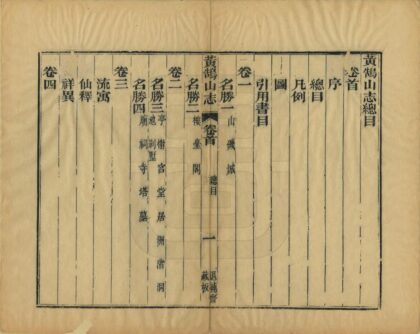 黃鵠山志總目
卷首
序
總目
凡例
圖
引用書目
卷一
名勝一 山 磯 城
名勝二 樓 臺 閣
黃鵠山志 卷首 總目 一
卷二
名勝三 亭 宮 堂 居 洲 洞
名勝四 廟 祠 寺 塔 墓
卷三
流寓
仙釋
祥異
卷四